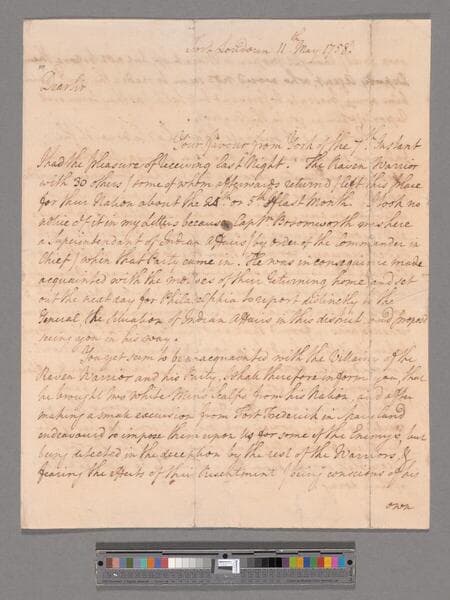 Fort Loudoun 11th May 1758.
Dear Sir
Your favour from York of the 7th Instant
I had the pleasure of receiving last Night. The Raven Warrior
with 30 others (some of whom afterwards returned) left this place
for their Nation about the or 5th of last Month. I took no
notice of it in my Letters because Captn Bosomworth was here
a Superintendant of Indian Affairs (by order of the Commander in
Chief) when that Party came in. He was in consequence made
acquainted with the motives of their returning home and set
out the next day for Philadelphia to report distinctly to the
General the Situation of Indian Affairs in this district and proposd
seeing you in his way.
You yet seem to be unacquainted with the Villainy of the
Raven Warrior and his Party, I shall therefore inform you, that
he brought two white Mens Scalps from his Nation, and after
making a small excursion from Fort Frederick in Maryland
endeavourd to impose them upon us for some of the Enemy's, but
being detected in the deception by the rest of the Warriors, &
fearing the effects of their Resentment (being conscious of his
own